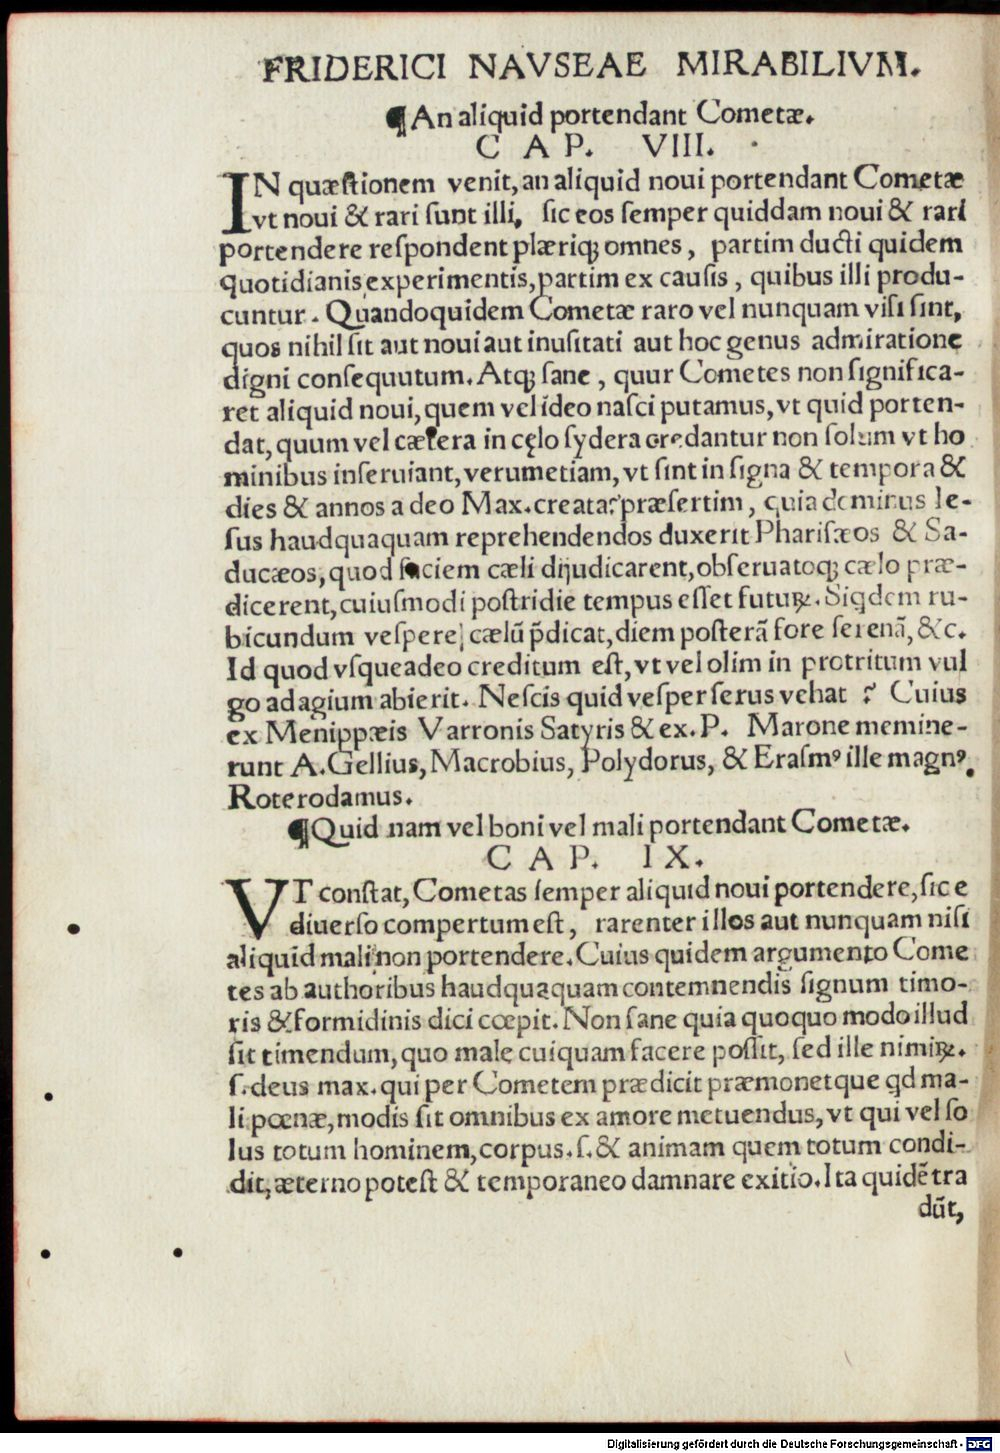 FRIDERICI NAVSEAE MIRABILIVM.
¶An aliquid portendant Cometæ.
CAP. VIII.
IN quæſtionem venit, an aliquid noui portendant Cometæ
vt noui & rari ſunt illi, ſic eos ſemper quiddam noui & rari
portendere reſpondent plæriqꝫ omnes, partim ducti quidem
quotidianis experimentis, partim ex cauſis, quibus illi produ-
cuntur. Quandoquidem Cometæ raro vel nunquam viſi ſint,
quos nihil ſit aut noui aut inuſitati aut hoc genus admiratione
digni conſequutum. Atqꝫ ſane, quur Cometes non ſignifica-
ret aliquid noui, quem vel ideo naſci putamus, vt quid porten-
dat, quum vel cætera in cęlo ſydera credantur non ſolum vt ho
minibus inſeruiant, verumetiam, vt ſint in ſigna & tempora &
dies & annos a deo Max. creata? præſertim, quia dominus Ie-
ſus haudquaquam reprehendendos duxerit Phariſæos & Sa-
ducæos, quod faciem cæli dijudicarent, obſeruatoqꝫ cælo præ-
dicerent, cuiuſmodi poſtridie tempus eſſet futuꝝ. Siqdem ru-
bicundum veſpere, cælū p̄dicat, diem poſterā fore ſerenā, &c.
Id quod vſqueadeo creditum eſt, vt vel olim in protritum vul
go adagium abierit. Neſcis quid veſper ſerus vehat? Cuius
ex Menippæis Varronis Satyris & ex. P. Marone memine-
runt A. Gellius, Macrobius, Polydorus, & Eraſmꝰ ille magnꝰ.
Roterodamus.
¶Quid nam vel boni vel mali portendant Cometæ.
CAP. IX.
VT conſtat, Cometas ſemper aliquid noui portendere, ſic e
diuerſo compertum eſt, rarenter illos aut nunquam niſi
aliquid mali non portendere. Cuius quidem argumento Come
tes ab authoribus haudquaquam contemnendis ſignum timo-
ris & formidinis dici cœpit. Non ſane quia quoquo modo illud
ſit timendum, quo male cuiquam facere poſſit, ſed ille nimiꝝ.
ſ. deus max. qui per Cometem prædicit præmonetque qd ma-
li pœnæ, modis ſit omnibus ex amore metuendus, vt qui vel ſo
lus totum hominem, corpus. ſ. & animam quem totum condi-
dit, æterno poteſt & temporaneo damnare exitio. Ita quidē tra
dūt,
Digitalisierung gefördert durch die Deutsche Forschungsgemeinschaft - DFG